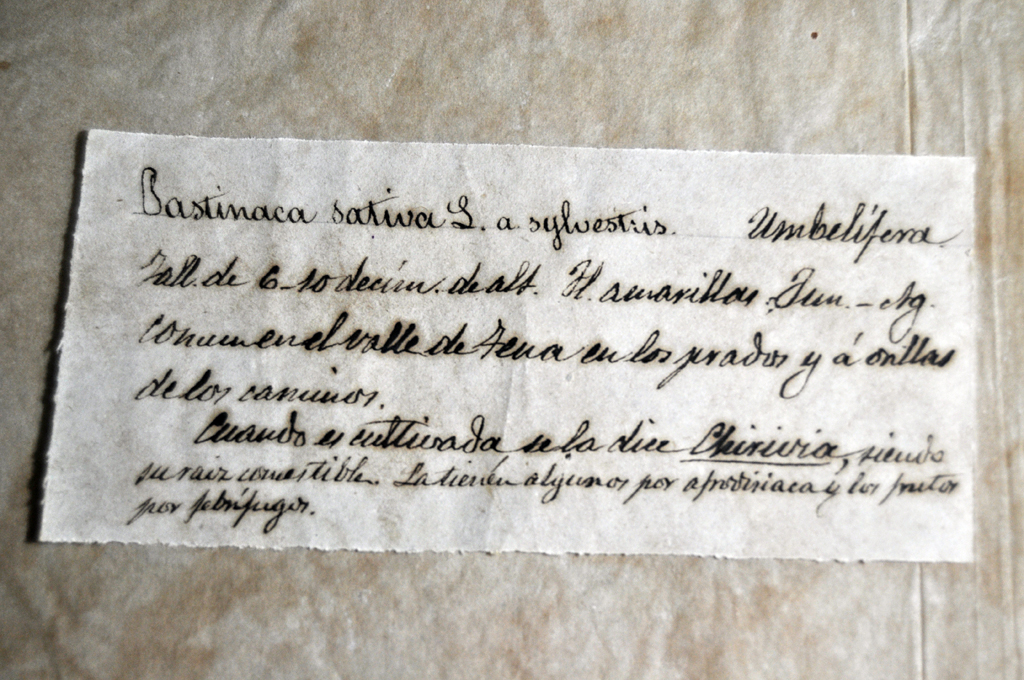 Pastinaca sativa L. a sylvestris. Umbelífera
Tall. de 6-10 decím. de alt. Fl. amarillas. Jun. - Ag.
Comun en el valle de Tena en los prados y á orillas
de los caminos.
Cuando es cultivada se la dice Chirivia, siendo
su raiz comestible. La tienen algunos por afrodisiaca y los frutos
por febrífugos.